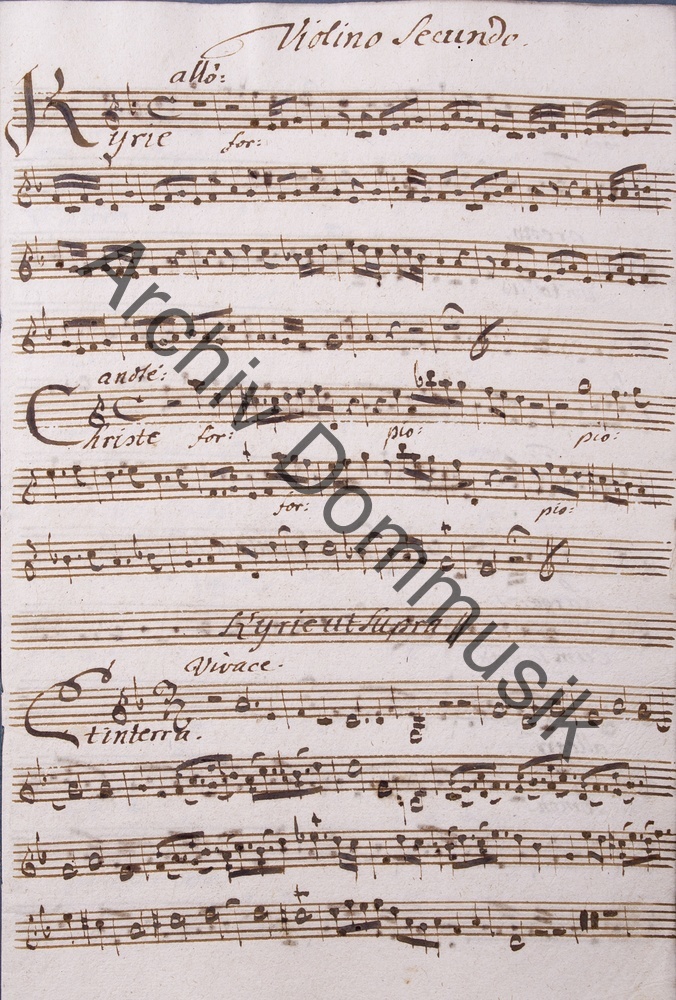 Violino Secundo.
allo:
Kyrie for:
andte:
Christe for: pio: pio:
for: pio:
Kyrie ut Supra
Vivace.
Et in terra.
Archiv Dommusik